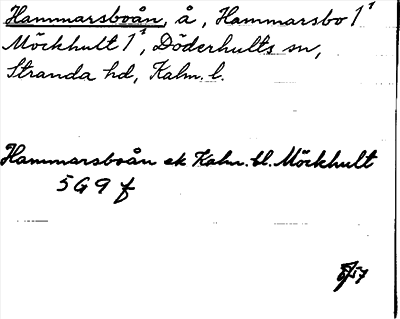 Hammarsboån, å, Hammarsbo 1¹
Möckhult 1¹, Döderhults sn,
Stranda hd, Kalm. l.
Hammarsboån ek Kalm. bl. Möckhult
5 G 9 f